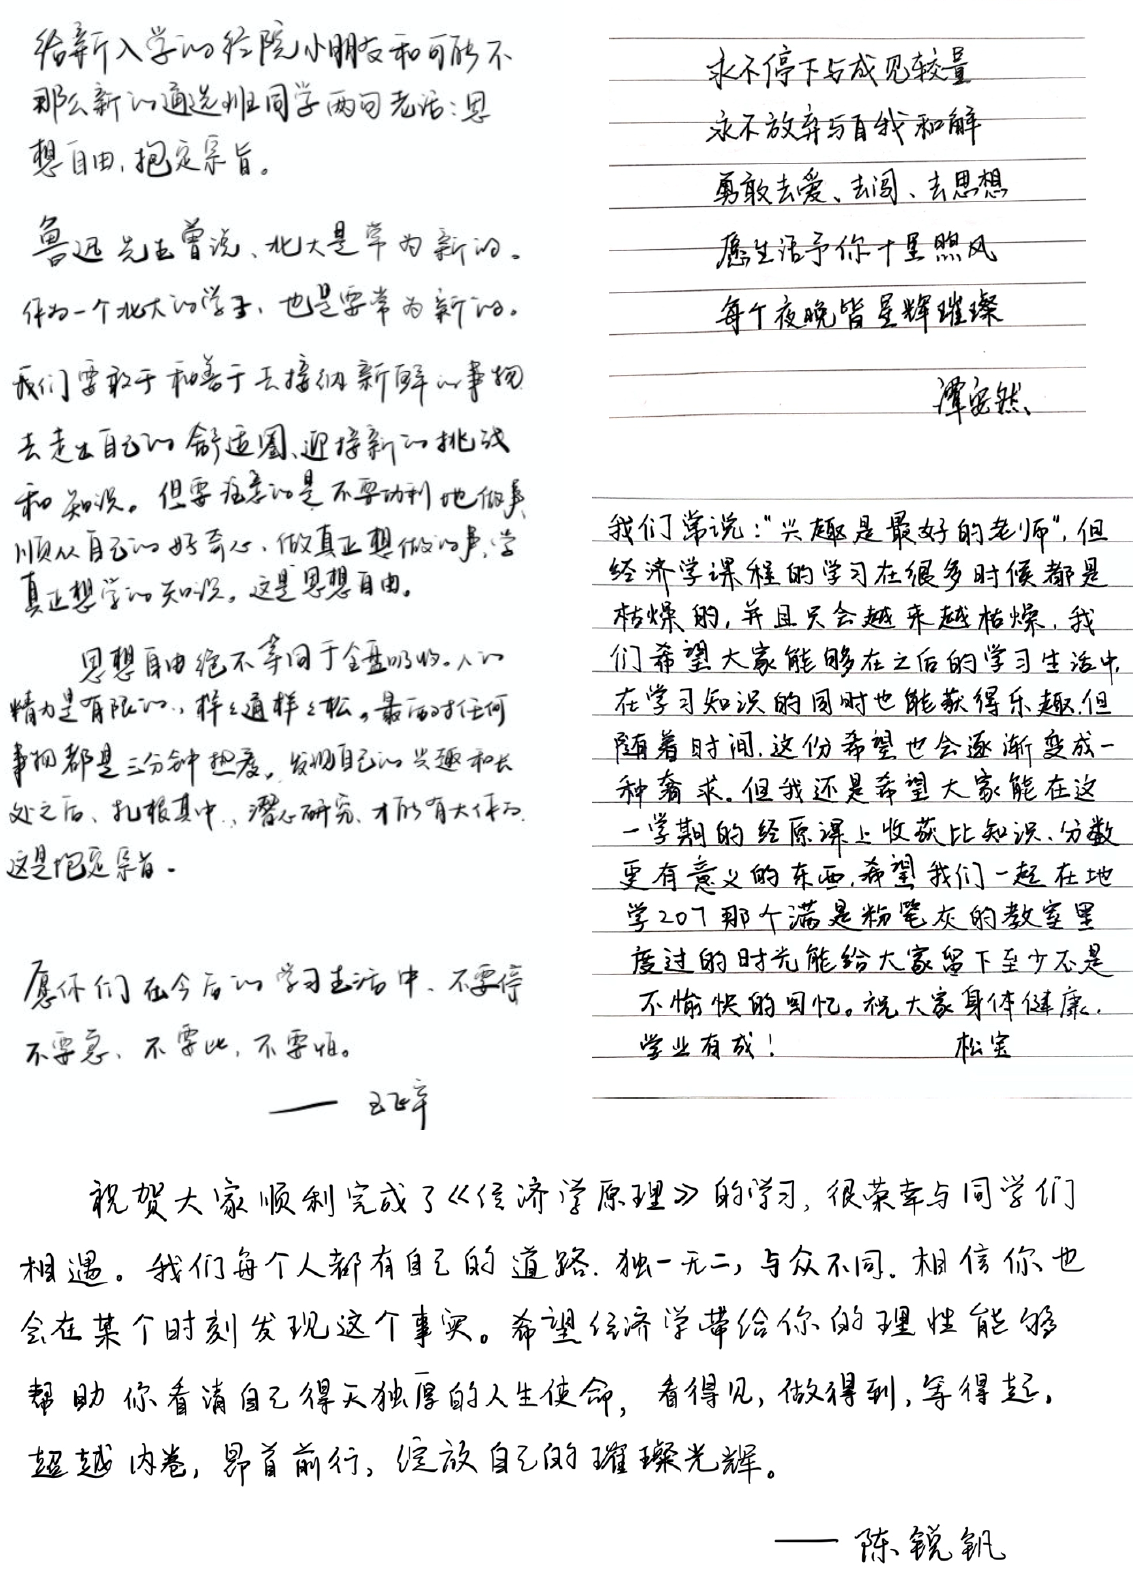 给新入学的经院小朋友和可能不
那么新的通选班同学两句老话:思
想自由,抱定宗旨。
鲁迅先生曾说、北大是常为新的。
作为一个北大的学子、也是要常为新的。
我们要敢于和善于去接纳新鲜的事物
去走出自己的舒适圈、迎接新的挑战
和知识。但要注意的是不要功利地做事
顺从自己的好奇心、做真正想做的事、学
真正想学的知识。这是思想自由。
思想自由绝不等同于全盘吸收。人的
精力是有限的、样样通样样松。最后对任何
事物都是三分钟热度。发掘自己的兴趣和长
处之后、扎根其中、潜心研究、才能有大作为
这是抱定宗旨。
愿你们在今后的学习生活中、不要停
不要急、不要比、不要怕。
永不停下与成见较量
永不放弃与自我和解
勇敢去爱、去闯、去思想
愿生活予你十里煦风
每个夜晚皆星辉璀璨
谭安然
我们常说:"兴趣是最好的老师",但
经济学课程的学习在很多时候都是
枯燥的,并且只会越来越枯燥,我
们希望大家能够在之后的学习生活中,
在学习知识的同时也能获得乐趣,但
随着时间,这份希望也会逐渐变成一
种奢求。但我还是希望大家能在这
一学期的经原课上收获比知识、分数
更有意义的东西,希望我们一起在地
学207那个满是粉笔灰的教室里
度过的时光能给大家留下至少不是
不愉快的回忆。祝大家身体健康,
学业有成! 松宝
祝贺大家顺利完成了《经济学原理》的学习,很荣幸与同学们
相遇。我们每个人都有自己的道路,独一无二,与众不同,相信你也
会在某个时刻发现这个事实。希望经济学带给你的理性能够
帮助你看清自己得天独厚的人生使命,看得见,做得到,等得起。
超越内卷,昂首前行,绽放自己的璀璨光辉。
——陈锐钒